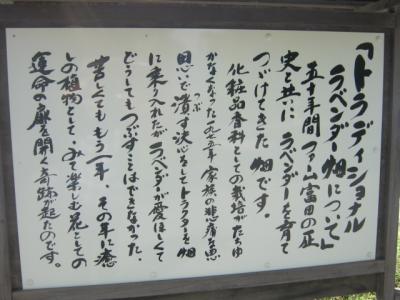 「トラディショナル
ラベンダー畑について」
五十年間ファーム富田の歴
史と共に ラベンダーを育て
つづけてきた畑です。
化粧品香料としての栽培がたちゆ
かなくなった一九七五年 家族の悲痛な思
思いで潰す決心をしてトラクターを畑
つぶ
に乗り入れたが ラベンダーが愛しくて
どうしてもつぶすことはできなかった。
苦しくてももう一年、その年に癒
しの植物として、みて楽しむ花としての
運命の扉を開く奇跡が起たのです。